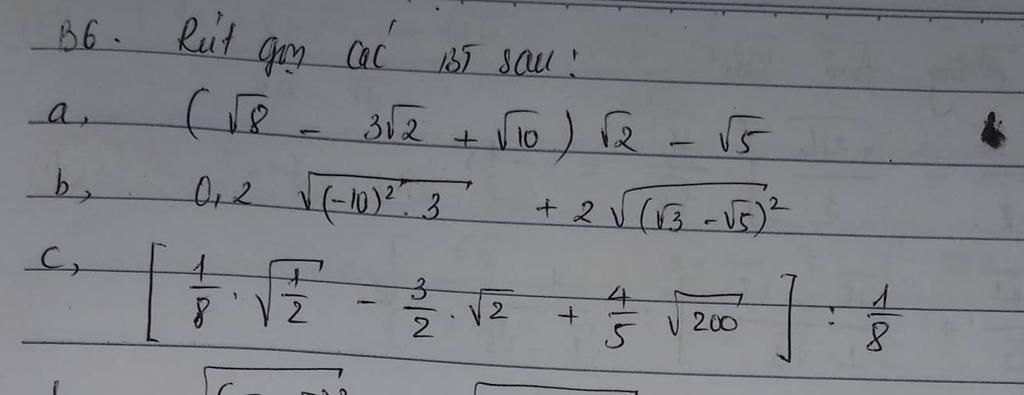 B6. Rút gọn các BT sau:
a, (√8 - 3√2 + √10) √2 - √5
b, 0,2 √((-10)².3) + 2√((√3 - √5)²)
c, [1/8 . √(1/2) - 3/2 . √2 + 4/5 √200] : 1/8